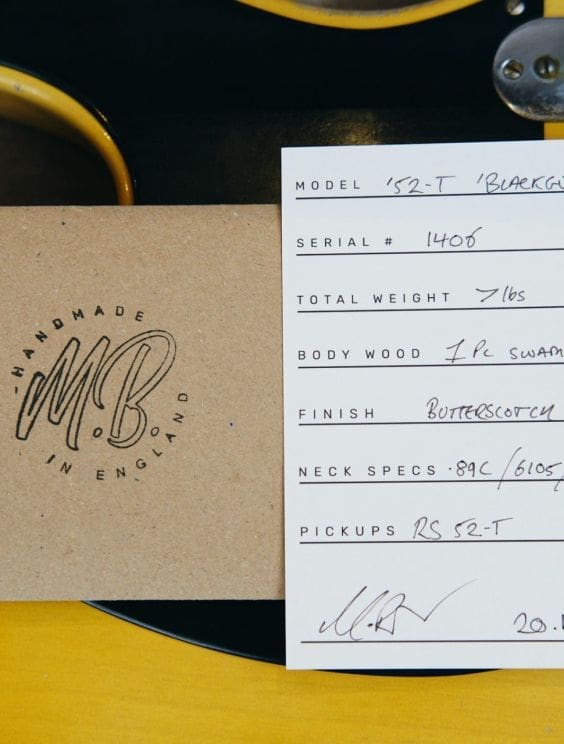 HANDMADE
M.B.
IN ENGLAND
MODEL '52-T 'BLACKGU
SERIAL # 1406
TOTAL WEIGHT 7 lbs
BODY WOOD 1 PC SWAM
FINISH BUTTERSCOTCH
NECK SPECS .89C / 6105
PICKUPS RS 52-T
20.